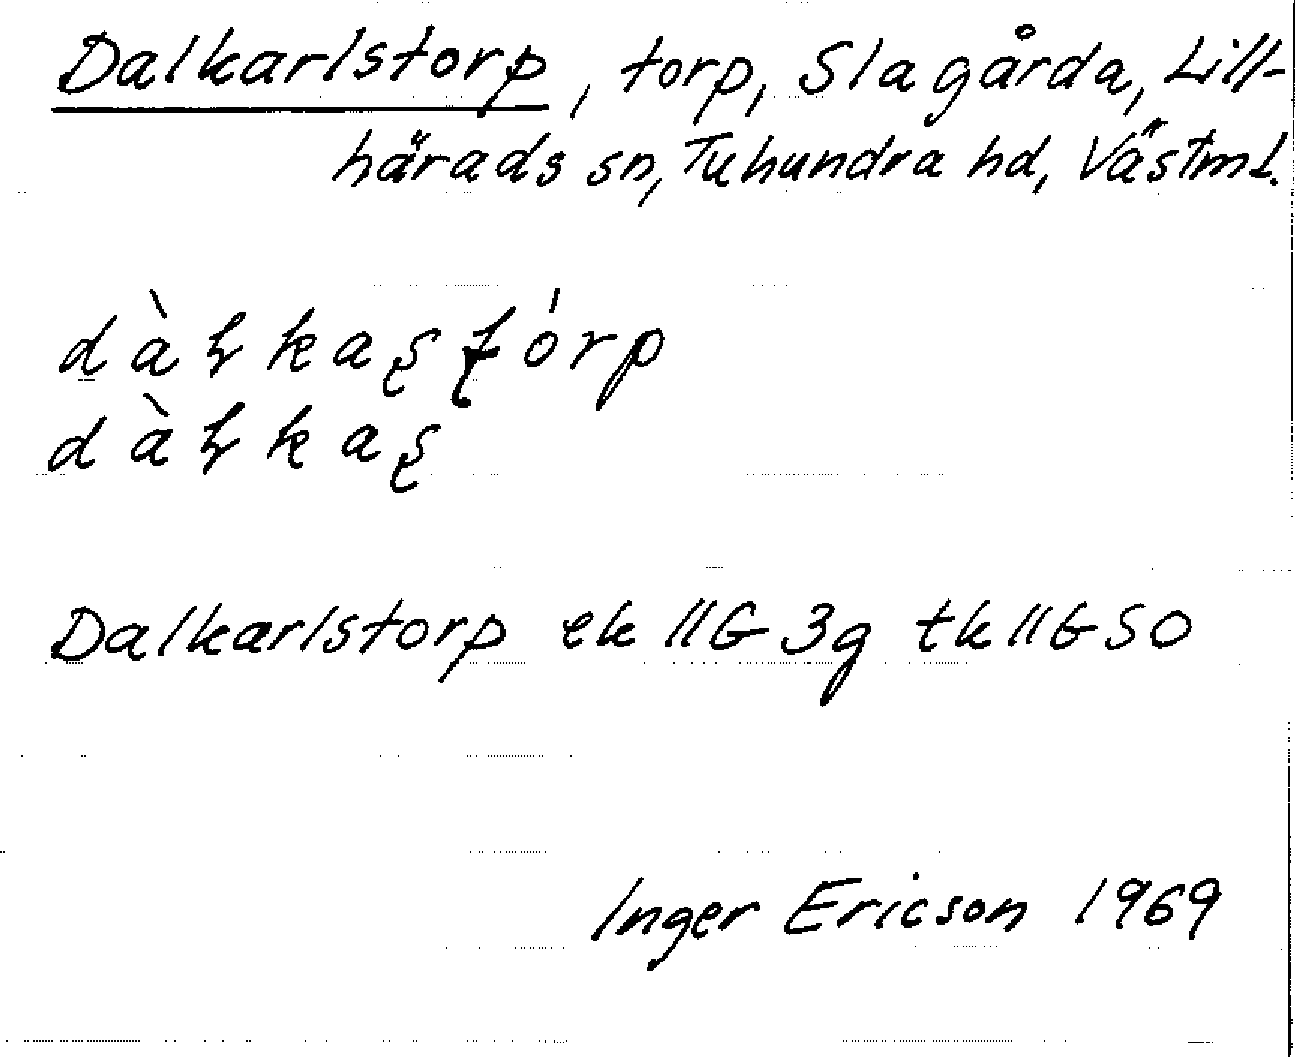 Dalkarlstorp, torp, Slagårda, Lill-
härads sn, Tuhundra hd, Västml.
dàɽkaʂʈórp
dàɽkaʂ
Dalkarlstorp ek 11G 3g tk 11G SO
Inger Ericson 1969